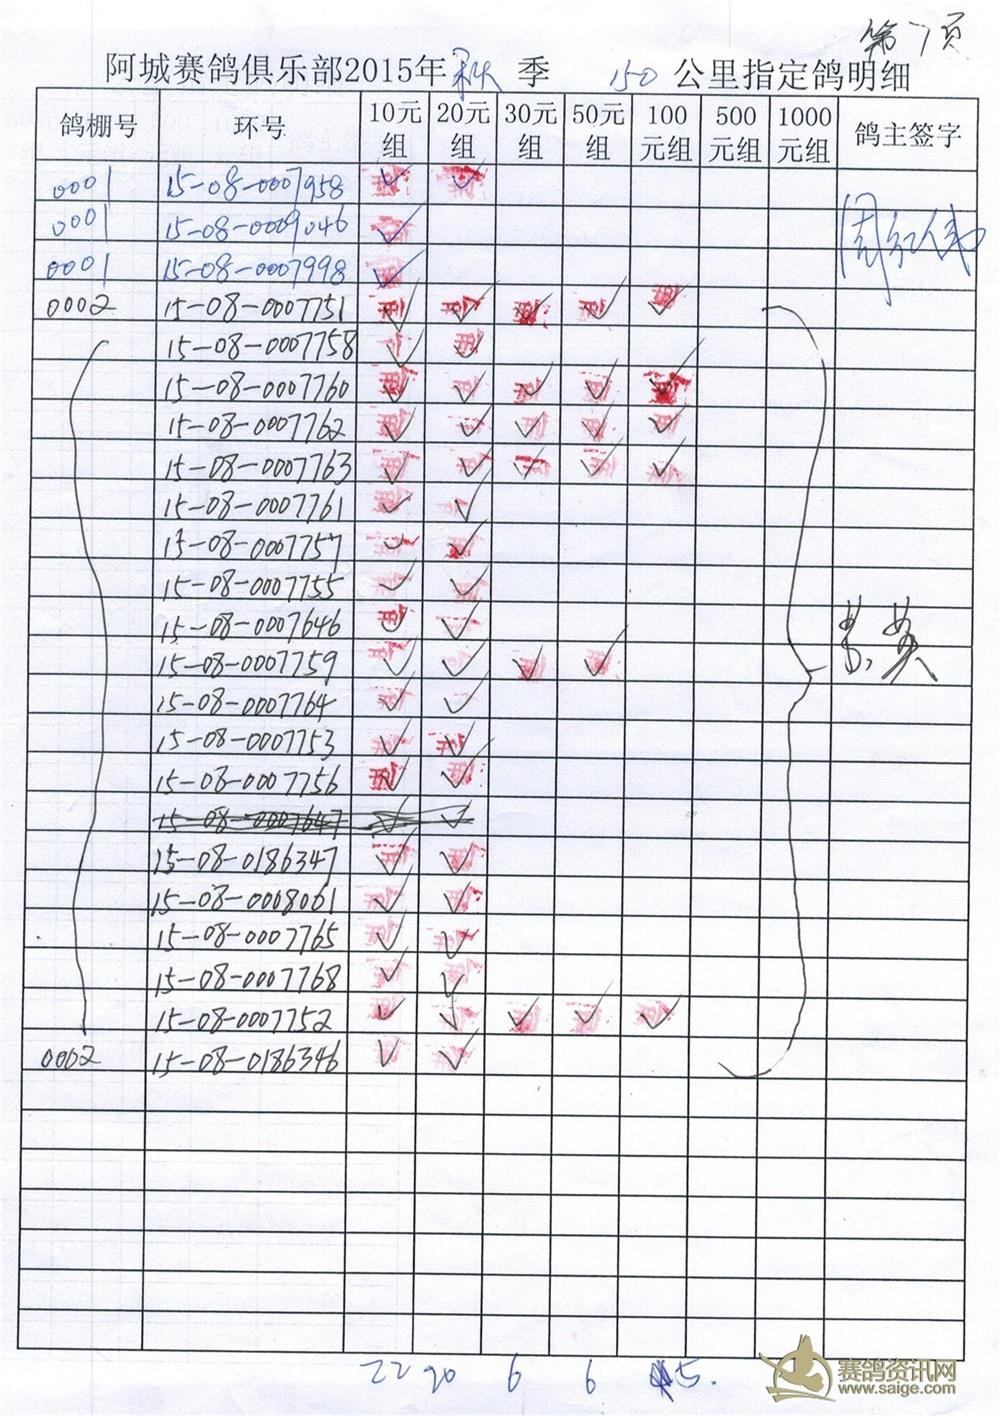 第1页
阿城赛鸽俱乐部2015年秋季 150公里指定鸽明细
鸽棚号 环号 10元组 20元组 30元组 50元组 100元组 500元组 1000元组 鸽主签字
0001 15-08-0007958 ✓ ✓
0001 15-08-0009046 ✓
0001 15-08-0007998 ✓
0002 15-08-0007751 ✓ ✓ ✓ ✓ ✓
15-08-0007758 ✓ ✓
15-08-0007760 ✓ ✓ ✓ ✓ ✓
15-08-0007762 ✓ ✓ ✓ ✓ ✓
15-08-0007763 ✓ ✓ ✓ ✓ ✓
15-08-0007761 ✓ ✓
15-08-0007757 ✓ ✓
15-08-0007755 ✓ ✓
15-08-0007646 ✓ ✓
15-08-0007759 ✓ ✓ ✓ ✓
15-08-0007764 ✓ ✓
15-08-0007753 ✓ ✓
15-08-0007756 ✓ ✓
15-08-0007647 ✓ ✓
15-08-0186347 ✓ ✓
15-08-0008061 ✓ ✓
15-08-0007765 ✓ ✓
15-08-0007768 ✓ ✓
15-08-0007752 ✓ ✓ ✓ ✓ ✓
0002 15-08-0186346 ✓ ✓
22 20 6 6 5.
赛鸽资讯网
www.saige.com